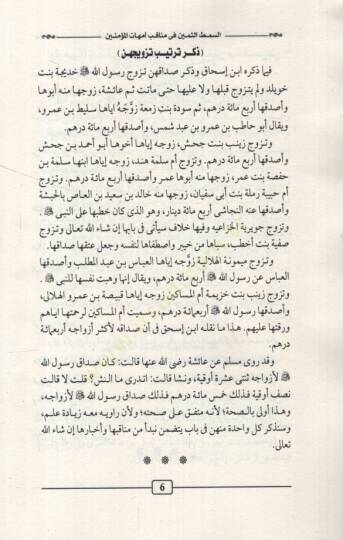 السمط الثمين فى مناقب أمهات المؤمنين
(ذكر ترتيب تزويجهن)
فيما ذكره ابن إسحاق وذكر صداقهن تزوج رسول الله ﷺ خديجة بنت
خويلد ولم يتزوج قبلها ولا عليها حتى ماتت ثم عائشة، زوجها منه أبوها
وأصدقها أربع مائة درهم، ثم سودة بنت زمعة زوَّجَهُ اياها سليط بن عمرو،
ويقال أبو حاطب بن عمرو بن عبد شمس، وأصدقها أربع مائة درهم.
وتزوج زينب بنت جحش، زوجه إياها أخوها أبو أحمد بن جحش
وأصدقها أربع مائة درهم. وتزوج أم سلمة هند، زوجه إياها ابنها سلمة بن
حفصة بنت عمر، زوجها منه أبوها عمر وأصدقها أربع مائة درهم. وتزوج
أم حبيبة رملة بنت أبى سفيان، زوجها منه خالد بن سعيد بن العاص بالحبشة
وأصدقها عنه النجاشى أربع مائة دينار، وهو الذى كان خطبها على النبى ﷺ.
وتزوج جويرية الخزاعيه وفيها خلاف سيأتى فى بابها إن شاء الله تعالى وتزوج
صفية بنت أخطب، سباها من خيبر واصطفاها لنفسه وجعل عتقها صداقها.
وتزوج ميمونة الهلالية زوَّجه إياها العباس بن عبد المطلب وأصدقها
العباس عن رسول الله ﷺ أربع مائة درهم، ويقال إنها وهبت نفسها للنبى ﷺ.
وتزوج زينب بنت خزيمة أم المساكين زوجه إياها قبيصة بن عمرو الهلالى،
وأصدقها رسول الله ﷺ أربعمائة درهم، وسميت أم المساكين لرحمتها اياهم
ورقتها عليهم. هذا ما نقله ابن إسحق فى أن صداقه لأكثر أزواجه أربعمائة
درهم.
وقد روى مسلم عن عائشة رضى الله عنها قالت: كان صداق رسول الله
ﷺ لأزواجه ثنتى عشرة أوقية، ونشا قالت: اتدرى ما النش؟ قلت لا قالت
نصف أوقية فذلك خمس مائة درهم فذلك صداق رسول الله ﷺ لأزواجه،
وهذا أولى بالصحة؛ لأنه متفق على صحته؛ ولأن راويه معه زيادة علم،
وسنذكر كل واحدة منهن فى باب يتضمن نبذاً من مناقبها وأخبارها إن شاء الله
تعالى.
* * *
6